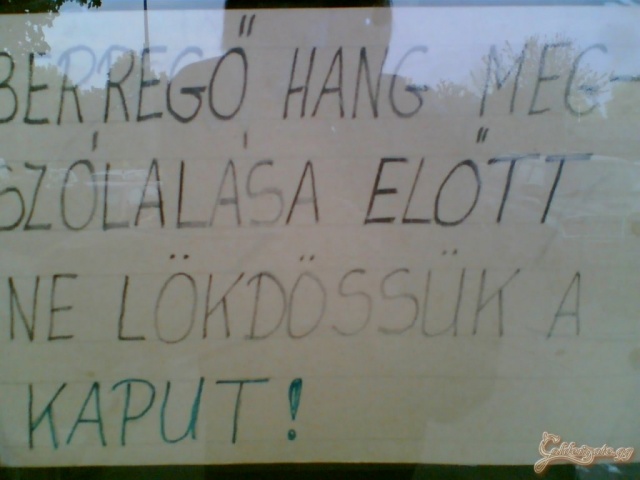 BERREGŐ HANG MEG-
SZÓLALÁSA ELŐTT
NE LÖKDÖSSÜK A
KAPUT!